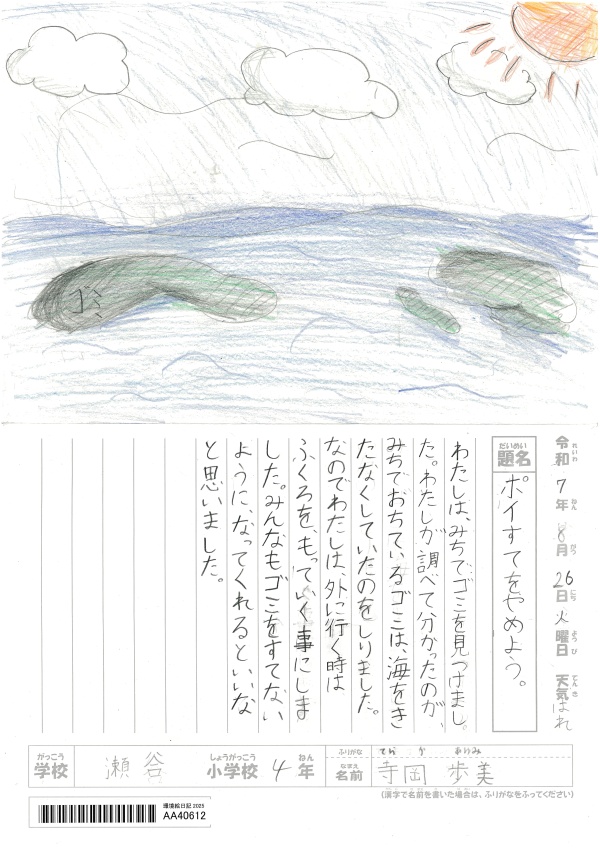 ゴミ
令和7年8月26日火曜日 天気はれ
れいわ ねん がつ にち ようび てんき
だいめい
題名 ポイすてをやめよう。
わたしは、みちでゴミを見つけまし
た。わたしが調べて分かったのが、
みちでおちているゴミは、海をき
たなくしていたのをしりました。
なのでわたしは、外に行く時は
ふくろを、もっていく事にしま
した。みんなもゴミをすてない
ように、なってくれるといいな
と思いました。
がっこう しょうがっこう ねん
学校 瀬谷 小学校 4年
ふりがな てらおか あゆみ
なまえ
名前 寺岡 歩美
(漢字で名前を書いた場合は、ふりがなをふってください)
環境絵日記 2025
AA40612